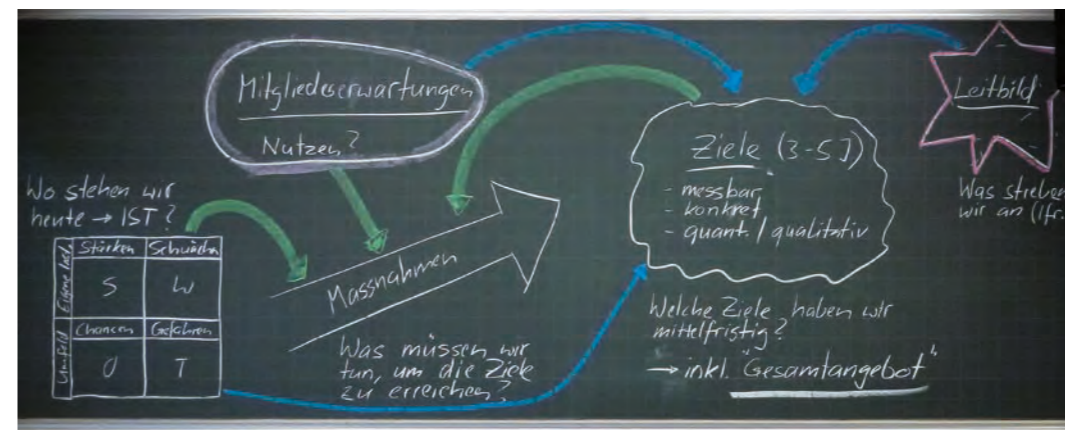 Mitgliedererwartungen
Nutzen?
Wo stehen wir
heute → IST?
Stärken
Schwächen
S
W
Umfeld
Chancen
Gefahren
O
T
Massnahmen
Was müssen wir
tun, um die Ziele
zu erreichen?
Ziele (3-5 J)
- messbar
- konkret
- quant. / qualitativ
Welche Ziele haben wir
mittelfristig?
→ inkl. "Gesamtangebot"
Leitbild
Was streben
wir an (lfr.